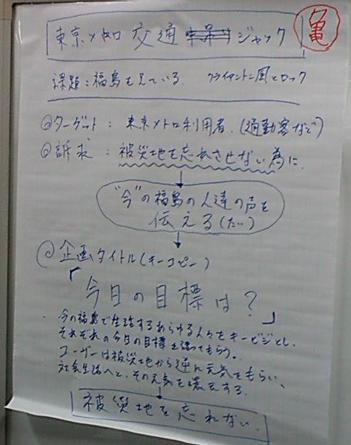 亀
東京メトロ 交通 ジャック
課題：福島を見ている。 クライアント＝風とロック
◎ターゲット： 東京メトロ利用者.(通勤客など)
◎訴求： 被災地を忘れさせない為に.
"今"の福島の人達の声を
伝える(たい)
◎企画タイトル(キーコピー)
「今日の目標は？」
・今の福島で生活するあらゆる人々をキービジとし、
それぞれの今日の目標を語ってもらう。
ユーザーは被災地から逆に元気をもらい、
社会全体へと、その元気を
被災地を忘れない.